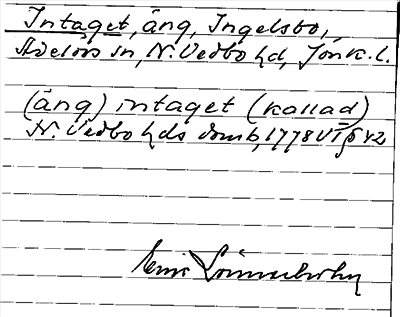 Intaget, äng, Ingelsbo,
Adelövs sn, N. Vedbo hd, Jönk. l.
(äng) intaget (kallad)
N. Vedbo hds domb, 1778 VT § 42